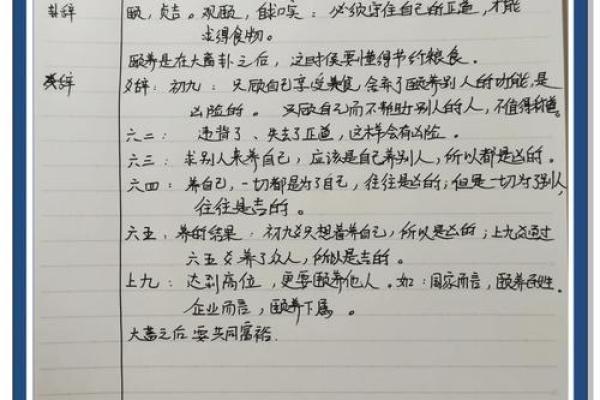 卦辞 颐，贞吉。观颐，自求口实：必须守住自己的正道，才能
求得食物。
颐养是在大畜卦之后，这时侯要懂得节约粮食。
爻辞 爻辞：初九：只顾自己享受美食，舍弃了颐养别人的功能，是
凶险的。只顾自己而不帮助别人的人，不值得称道。
六二：违背了、失去了正道，这样会有凶险。
六三：求别人来养自己，应该是自己养别人，所以都是凶的。
六四：养自己，一切都是为了自己，往往是凶的；但是一切为了别人
往往是吉的。
六五：养的结果：初九爻只想着养自己，所以是凶的；上九爻通过
六五爻养了众人，所以是吉的。
上九：达到高位，更要颐养他人。如：国家而言，颐养百姓。
企业而言，颐养下属。
大畜之后要共同富裕.